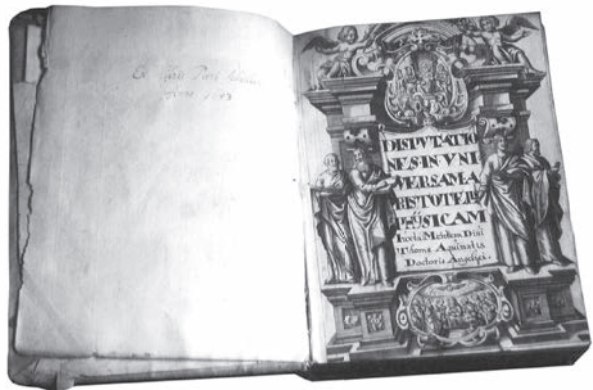 Ex libris
DISPVTATIO
NES·IN·VNI
VERSAM·A
RISTOTELIS
PHYSICAM
Iuxta Mentem Diui
Thomæ Aquinatis
Doctoris Angelici.